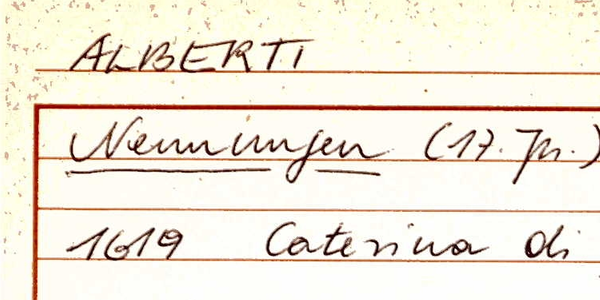 ALBERTI
Nennungen (17. Jh.)
1619 Caterina di